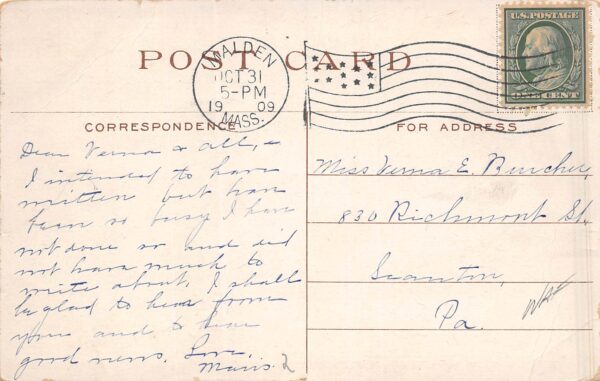 POST CARD
U.S. POSTAGE
ONE CENT
MALDEN
OCT 31
5-PM
1909
MASS.
CORRESPONDENCE
FOR ADDRESS
Dear Verna & all, -
I intended to have
written but have
been so busy I have
not done so and did
not have much to
write about. I shall
be glad to hear from
you and to hear
good news. Love,
Miss Verna E. Burcher,
830 Richmont St.
Scanton,
Pa.